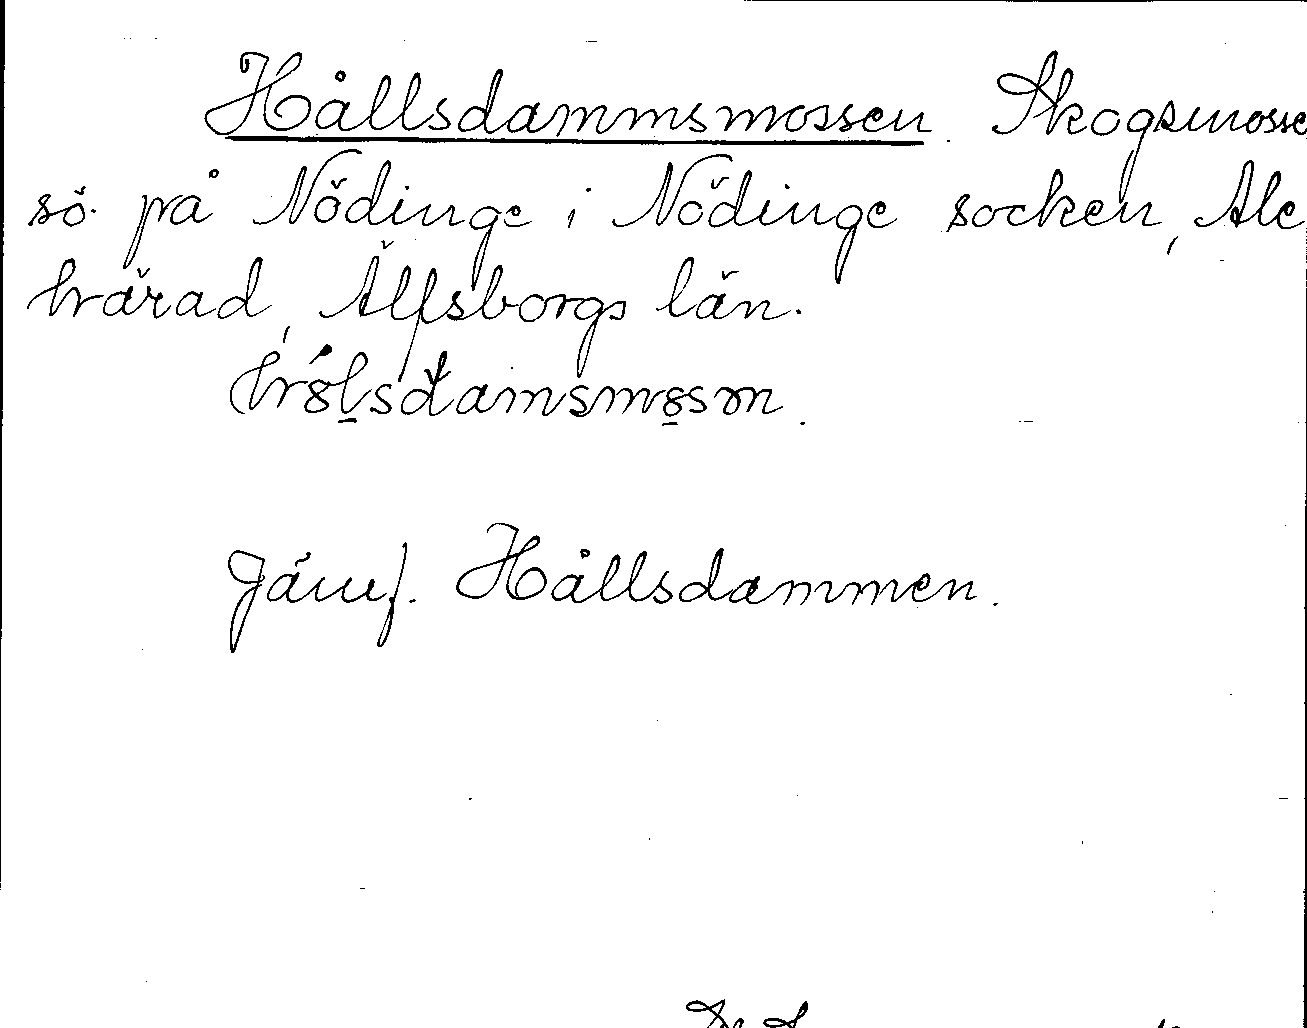 Hållsdammsmossen. Skogsmosse
sö. på Nödinge i Nödinge socken, Ale
härad, Älfsborgs län.
Jämf. Hållsdammen.